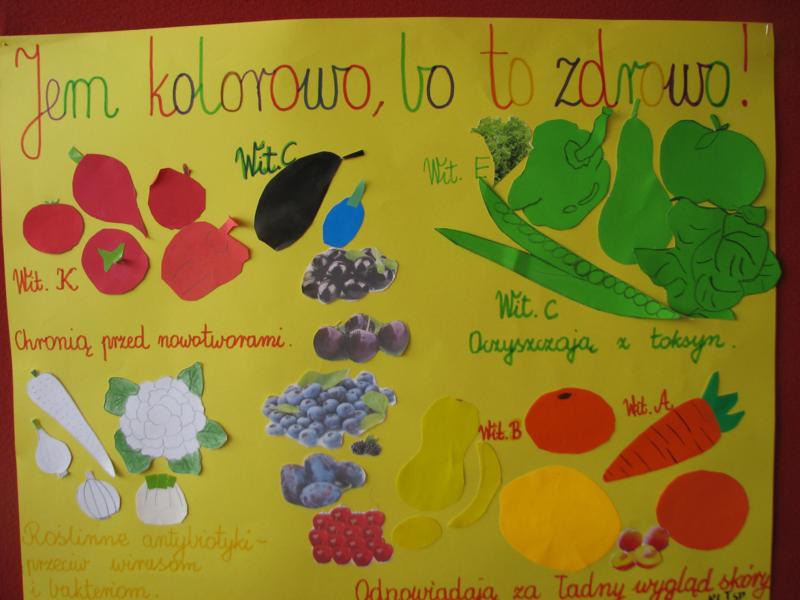 Jem kolorowo, bo to zdrowo!
Wit. C
Wit. E
Wit. K
Wit. C
Chronią przed nowotworami.
Oczyszczają z toksyn.
Wit. B
Wit. A
Roślinne antybiotyki -
przeciw wirusom
i bakteriom.
Odpowiadają za ładny wygląd skóry